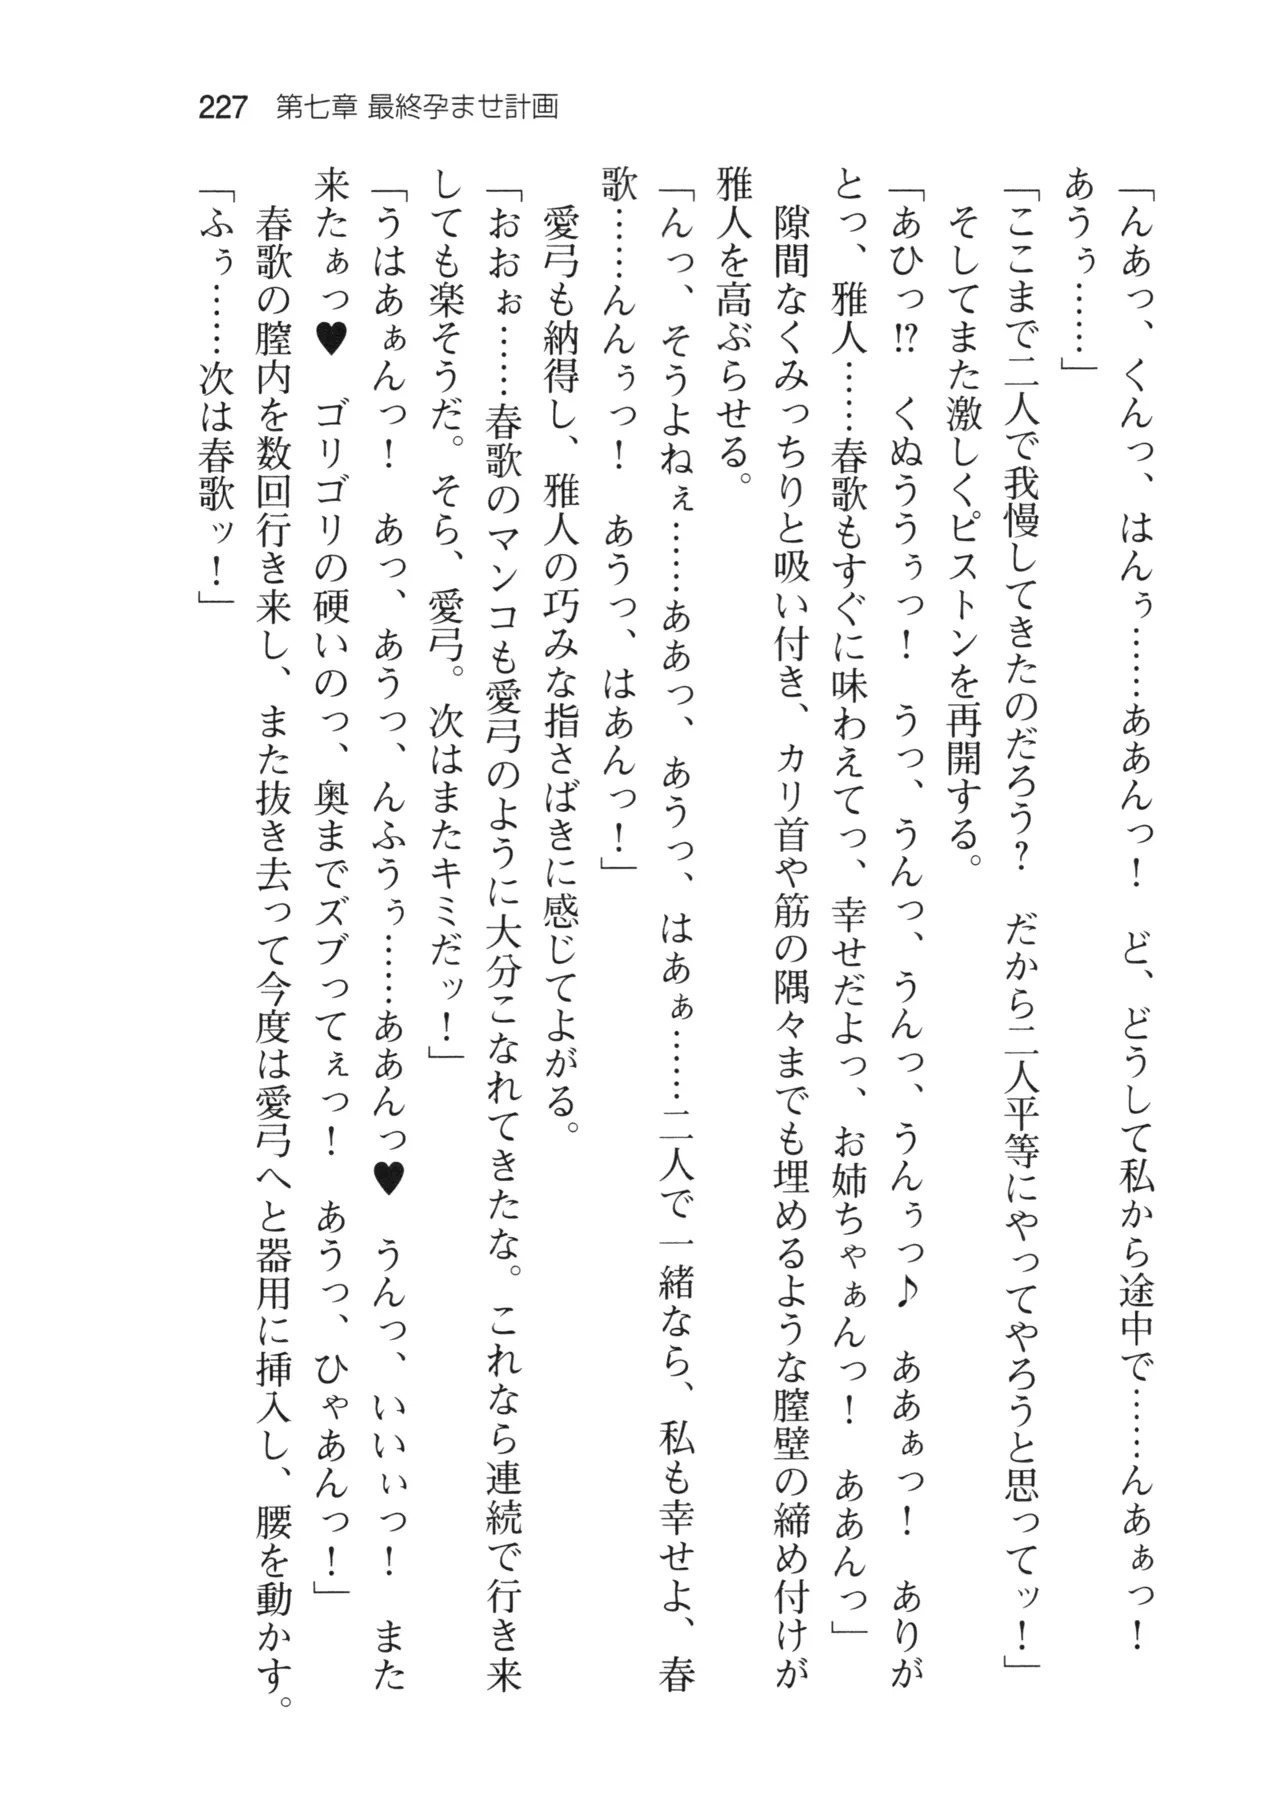 227 第七章 最終孕ませ計画
「んあっ、くんっ、はんぅ……ああんっ！　ど、どうして私から途中で……んあぁっ！
あうぅ……」
「ここまで二人で我慢してきたのだろう？　だから二人平等にやってやろうと思ってッ！」
そしてまた激しくピストンを再開する。
「あひっ!?　くぬううぅっ！　うっ、うんっ、うんっ、うんぅっ♪　ああぁっ！　ありが
とっ、雅人……春歌もすぐに味わえてっ、幸せだよっ、お姉ちゃぁんっ！　ああんっ」
隙間なくみっちりと吸い付き、カリ首や筋の隅々までも埋めるような膣壁の締め付けが
雅人を高ぶらせる。
「んっ、そうよねぇ……ああっ、あうっ、はあぁ……二人で一緒なら、私も幸せよ、春
歌……んんぅっ！　あうっ、はあんっ！」
愛弓も納得し、雅人の巧みな指さばきに感じてよがる。
「おおぉ……春歌のマンコも愛弓のように大分こなれてきたな。これなら連続で行き来
しても楽そうだ。そら、愛弓。次はまたキミだッ！」
「うはあぁんっ！　あっ、あうっ、んふうぅ……ああんっ♥　うんっ、いいぃっ！　また
来たぁっ♥　ゴリゴリの硬いのっ、奥までズブってぇっ！　あうっ、ひゃあんっ！」
春歌の膣内を数回行き来し、また抜き去って今度は愛弓へと器用に挿入し、腰を動かす。
「ふぅ……次は春歌ッ！」